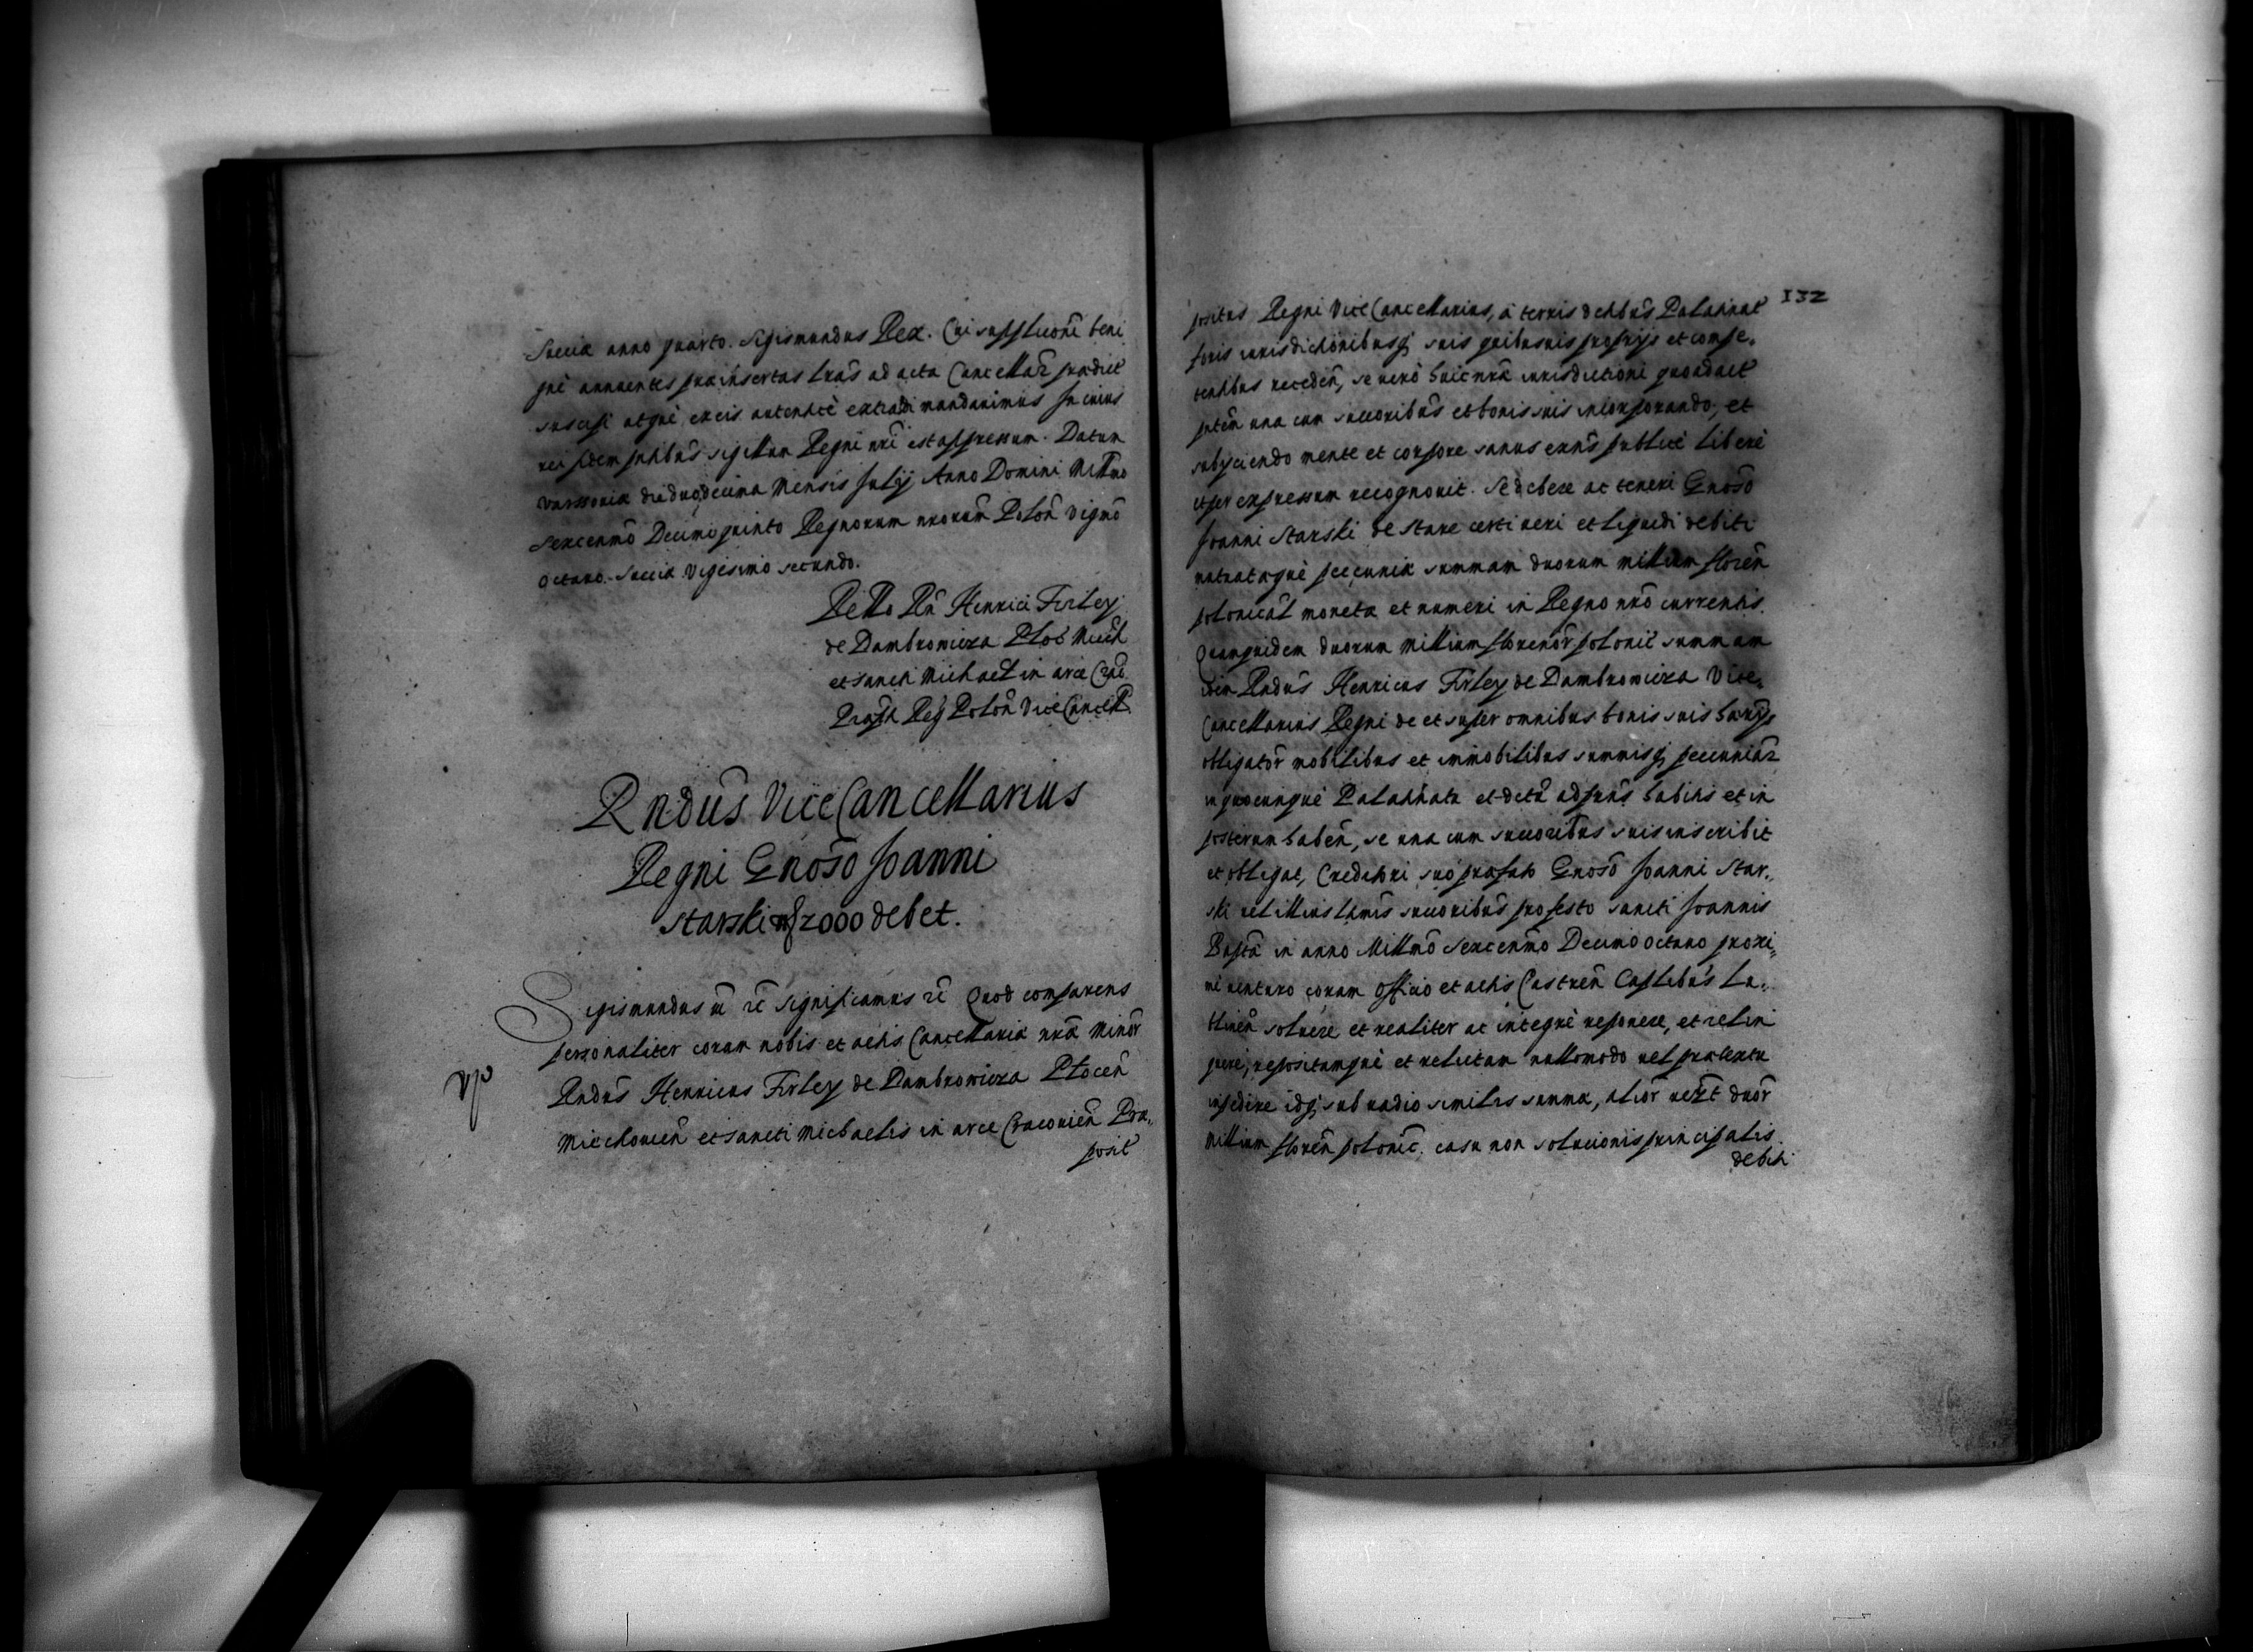 Sueciæ anno quarto. Sigismundus Rex. Cui supplicoñi beni
gnè annuentes præinsertas lrãs ad acta Cancellar̃ prædict
suscipi atquè ex eis autenticè extradi mandavimus In cuius
rei fidem pñtibus sigillum Regni nrĩ est appressum. Datum
Varssoviæ die duodecima Mensis Julij Anno Domini Millmo
Sexcenmõ Decimo quinto Regnorum nrorum Polon̄ Vigmõ
octavo. Sueciæ vigesimo secundo.
Rello Rñ Henrici Firley
de Dambrowicza Ploc̃ Miech
et sancti Michael in arce Crac̃
Præpt Reg Polon̄ ViceCancell.
Rndūs ViceCancellarius
Regni Gnōso Joanni
Starski mf 2000 debet.
Sigismundus III rc̃ Significamus rc̃ Quod comparens
personaliter coram nobis et actis Cancellariæ nræ Minor̃
Rndūs Henricus Firley de Dambrowicza Plocen̄
Miechovien̄ et sancti Michaelis in arce Cracovien̄ Præ„
posit
132
positus Regni ViceCancellarius, à terris d
foris iurisdictionibusq; suis quibusvis proprijs et compe„
tentibus receden̄, se verò huic nræ iurisdictioni quoad act
pñtem una cum succoribus et bonis suis incorporando, et
subyciendo mente et corpore sanus exñs publicè liberè
et per expressum recognovit. Se debere ac teneri Gnōso
Joanni Starski de Stare certi veri et liquidi debiti
mutuatæquè pecuniæ summam duorum millium floren̄
polonical moneta et numeri in Regno nrõ currentis.
Quamquidem duorum Millium florenor̃ polonic̃ summam
idem Rndūs Henricus Firley de Dambrowicza Vice„
Cancellarius Regni de et super omnibus bonis suis
obligator̃ mobilibus et immobilibus summisq; pecuniar̃
in quocunquè Palatinatu et adpñs habitis et in
posterum haben̄, se una cum succoribus suis inscribit
et obligat, Creditori suo præfato Gnōso Joanni Star„
ski vel illius lẽmis succoribus pro festo sancti Joannis
Bapta in anno Millmõ Sexcenmõ Decimo octavo proxi„
mè venturo coram Officio et actis Castren̄ Captlibus Lu„
blinen̄ solvere et realiter ac integrè reponere, et relin
quere, repositamquè et relictam nullomodo vel prætextu
impedire idq; sub vadio similis summæ, alior̃ duor̃
Millium floren̄ polonic̃. casu non solucionis principalis
debiti